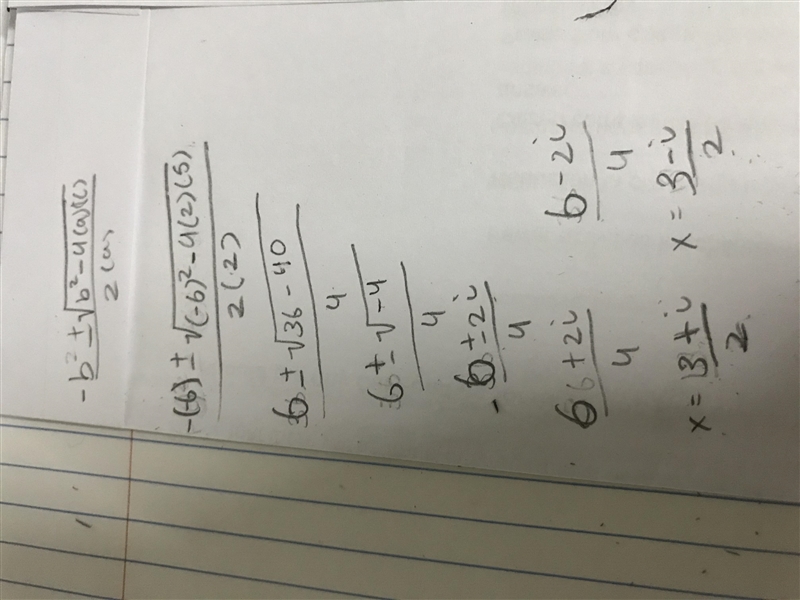 -b² ± √b² - 4(a)(c)
2(a)
-(-6) ± √(-6)² - 4(2)(5)
2(2)
6 ± √36 - 40
4
6 ± √-4
4
-6 ± 2i
4
6 + 2i
4
6 - 2i
4
x = 3 + i
2
x = 3 - i
2